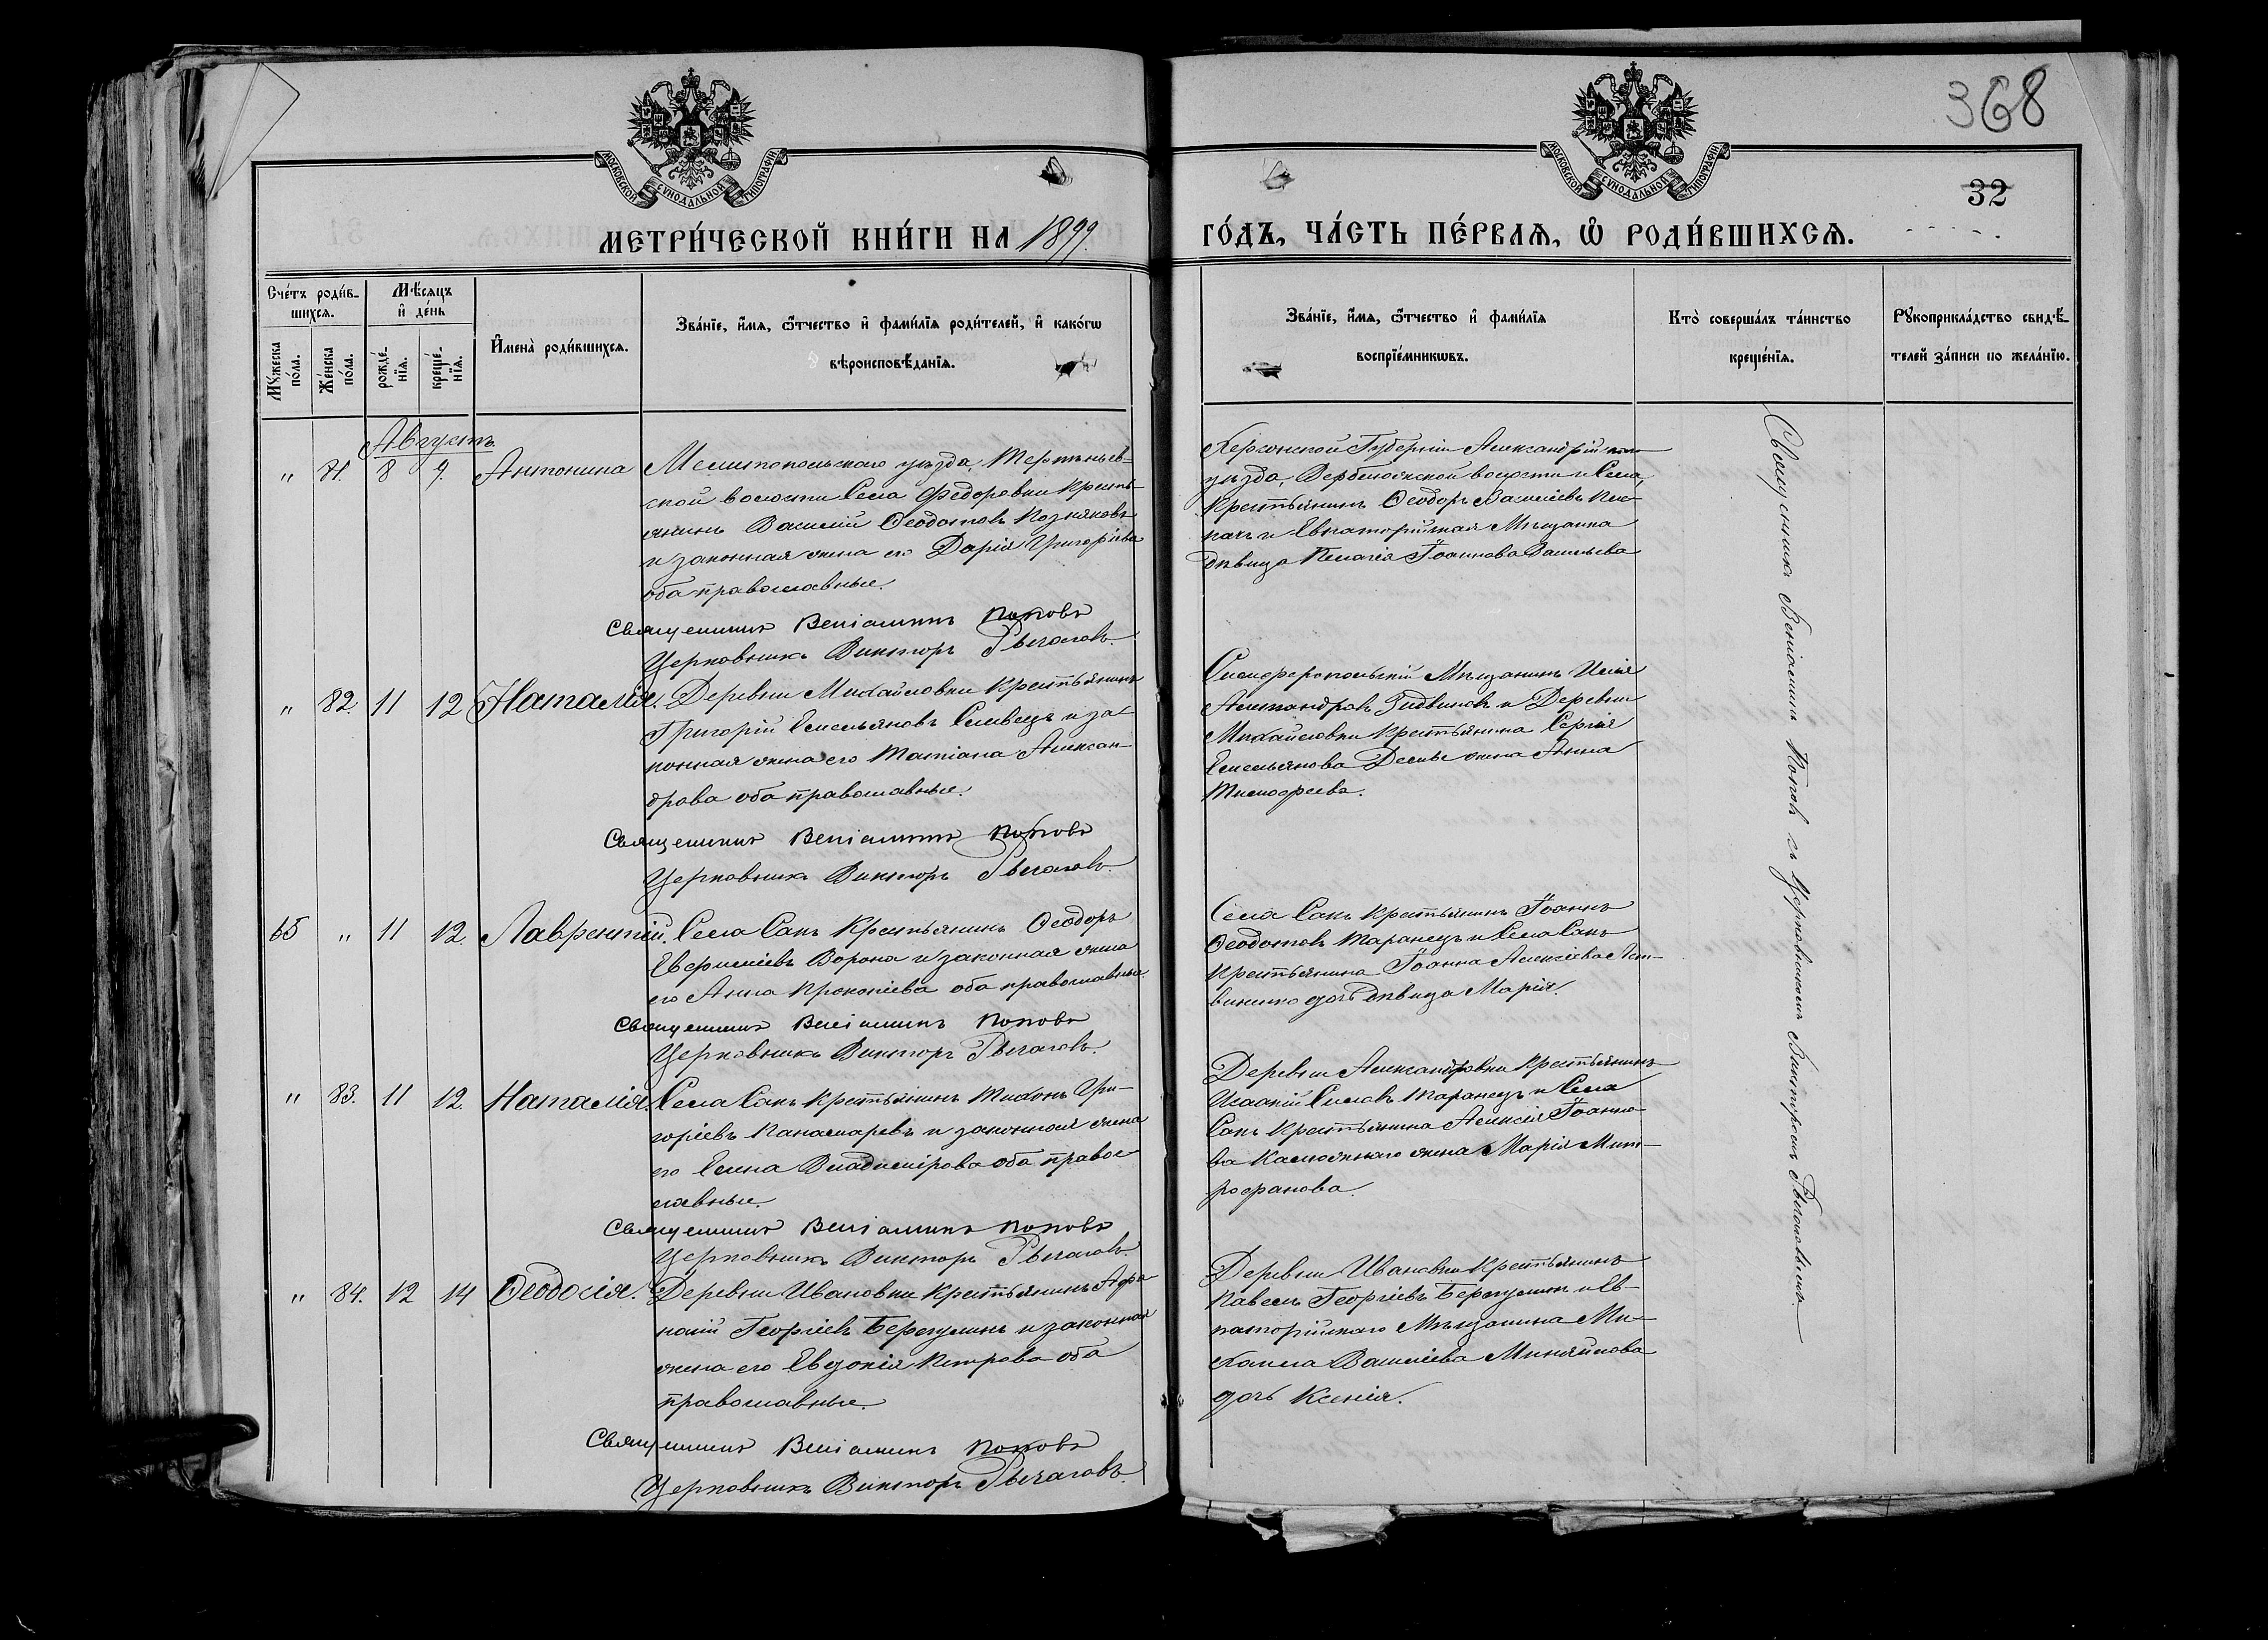 368
МОСКОВСКОЙ СУНОДАЛЬНОЙ ТИПОГРАФІИ
МОСКОВСКОЙ СУНОДАЛЬНОЙ ТИПОГРАФІИ
32
МЕТРИ́ЧЕСКОЙ КНИ́ГИ НА 1899
ГО́ДЪ, ЧА́СТЬ ПЕ́РВАѦ, Ѡ҆ РОДИ́ВШИХСѦ.
Сче́тъ роди́в-
шихсѧ.
Мꙋ́жеска по́ла.
Же́нска по́ла.
Мѣ́сѧцъ и҆ де́нь
рожде́-
нїѧ.
креще́-
нїѧ.
И҆мена̀ роди́вшихсѧ.
Зва́нїе, и҆́мѧ, ѻ҆́тчество и҆ фами́лїѧ роди́телей, и҆ како́гѡ
вѣроисповѣ́данїѧ.
Зва́нїе, и҆́мѧ, ѻ҆́тчество и҆ фами́лїѧ
воспрїе́мникѡвъ.
Кто̀ соверша́лъ та́инство
креще́нїѧ.
Рꙋкоприкла́дство свидѣ́-
телей за́писи по жела́нїю.
Августъ
" 8 9. Антонина
Мелитопольскаго уѣзда,
ской волости Села Федоровки Кресть-
янинъ Василій Ѳеодотовъ Позняковъ
и законная жена его Дарія Григорьева
оба православные.
Священникъ Веніаминъ Поповъ
Церковникъ Викторъ Рычаговъ.
Херсонской Губерніи Александрій
уѣзда, волости и Села
Крестьянинъ Ѳеодоръ Василіевъ
и Евпаторійская Мѣщанка
дѣвица Пелагія Іоаннова Васильева
" 82. 11 12 Наталія.
Деревни Михайловки Крестьянинъ
Григорій Емельяновъ и за-
конная жена его Татіана Алексан-
дрова оба православные.
Священникъ Веніаминъ Поповъ
Церковникъ Викторъ Рычаговъ.
Симферопольскій Мѣщанинъ Илія
Александровъ и Деревни
Михайловки Крестьянина Сергія
Емельянова жена Анна
Тимофеева.
65 " 11 12. Лаврентій.
Села Сакъ Крестьянинъ Ѳеодоръ
Евфиміевъ Ворона и законная жена
его Анна Прокопіева оба православные
Священникъ Веніаминъ Поповъ
Церковникъ Викторъ Рычаговъ.
Села Сакъ Крестьянинъ Іоаннъ
Ѳеодотовъ Таранецъ и Села Сакъ
Крестьянина Іоанна Алексіева Лит-
виненко дочь дѣвица Марія.
" 83. 11 12. Наталія.
Села Сакъ Крестьянинъ Тихонъ Гри-
горіевъ Панамаревъ и законная жена
его Елена Владимірова оба право-
славные.
Священникъ Веніаминъ Поповъ
Церковникъ Викторъ Рычаговъ.
Деревни Александровки Крестьянинъ
Исаакій Силовъ Таранецъ и Села
Сакъ Крестьянина Алексія Іоанно-
ва жена Марія Мит-
рофанова.
" 84. 12 14 Ѳеодосія.
Деревни Ивановки Крестьянинъ Афа-
насій Георгіевъ и законная
жена его Евдокія Петрова оба
православные.
Священникъ Веніаминъ Поповъ
Церковникъ Викторъ Рычаговъ.
Деревни Ивановки Крестьянинъ
Павелъ Георгіевъ и Ев-
паторійскаго Мѣщанина Ми-
хаила Василіева Миняйлова
дочь Ксенія.
Священникъ Веніаминъ Поповъ съ Церковникомъ Викторомъ Рычаговымъ.